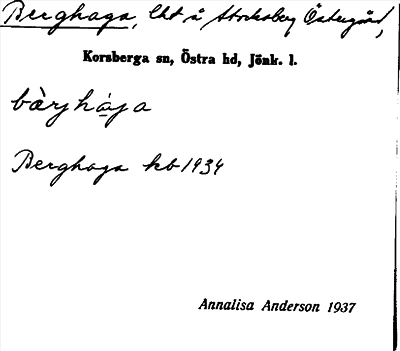 Berghaga, lht å Stocksberg Östergård,
Korsberga sn, Östra hd, Jönk. l.
bàrjhája
Berghaga kb 1934
Annalisa Anderson 1937